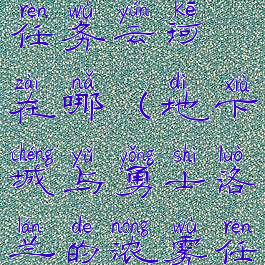 rèn wù yún kē
任务云珂
zài nǎ dì xià
在哪(地下
chéng yǔ yǒng shì luò
城与勇士洛
lán de nóng wù rèn
兰的浓雾任